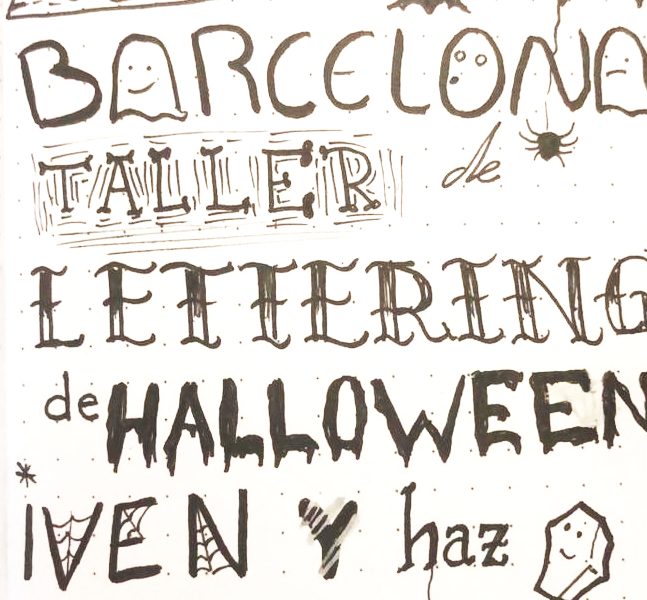 BARCELONA
TALLER de
LETTERING
de HALLOWEEN
* IVEN Y haz